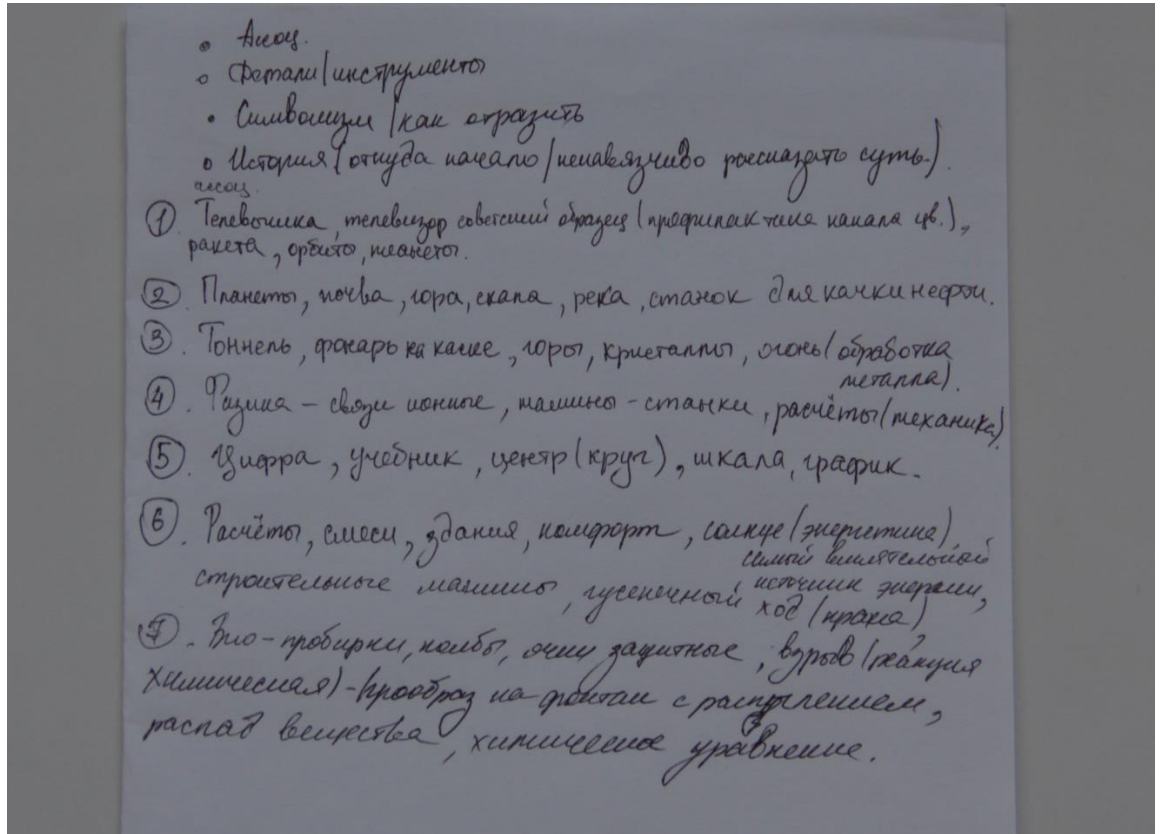 • Ассоц.
• Детали/инструменты
• Символизм/как отразить
• История (откуда начало/ненавязчиво рассказать суть.).
ассоц.
① Телевышка, телевизор советский образец (профилактика канала цв.),
ракета, орбиты, планеты.
② Планеты, почва, гора, скала, река, станок для качки нефти.
③. Тоннель, фонарь на каске, горы, кристаллы, огонь (обработка
металла).
④. Физика – связи ионные, машины – станки, расчёты (механика).
⑤. Цифра, учебник, центр (круг), шкала, график.
⑥. Расчёты, смеси, здания, комфорт, солнце (энергетика)
самый влиятельный
строительные машины, гусеничный источник энергии,
ход (крана),
⑦. Био – пробирки, колбы, очки защитные, взрыв (реакция
химическая) – (прообраз на фонтан с распылением,
распад вещества, химическое уравнение.